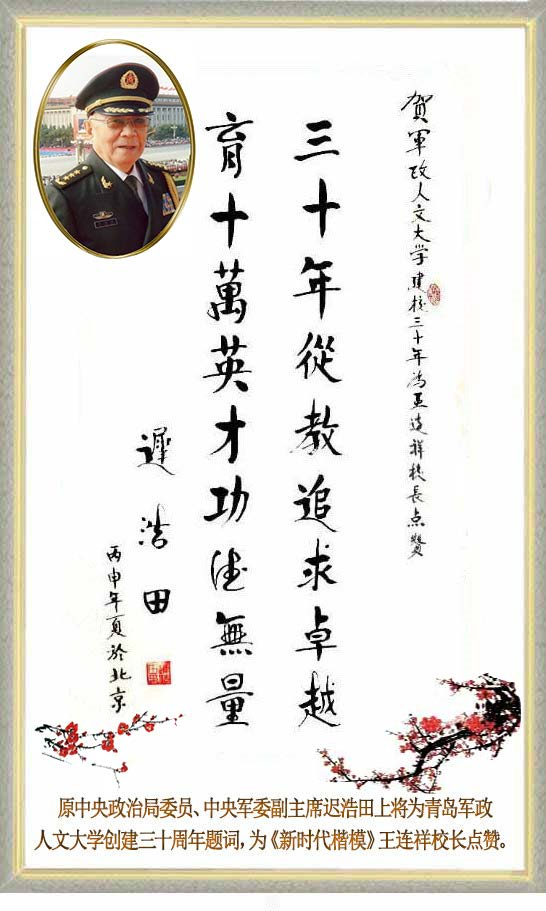 賀軍政人文大学建校三十年為王連祥校長点贊
三十年從教追求卓越
育十萬英才功德無量
遲浩田
丙申年夏於北京
原中央政治局委员、中央军委副主席迟浩田上将为青岛军政
人文大学创建三十周年题词，为《新时代楷模》王连祥校长点赞。